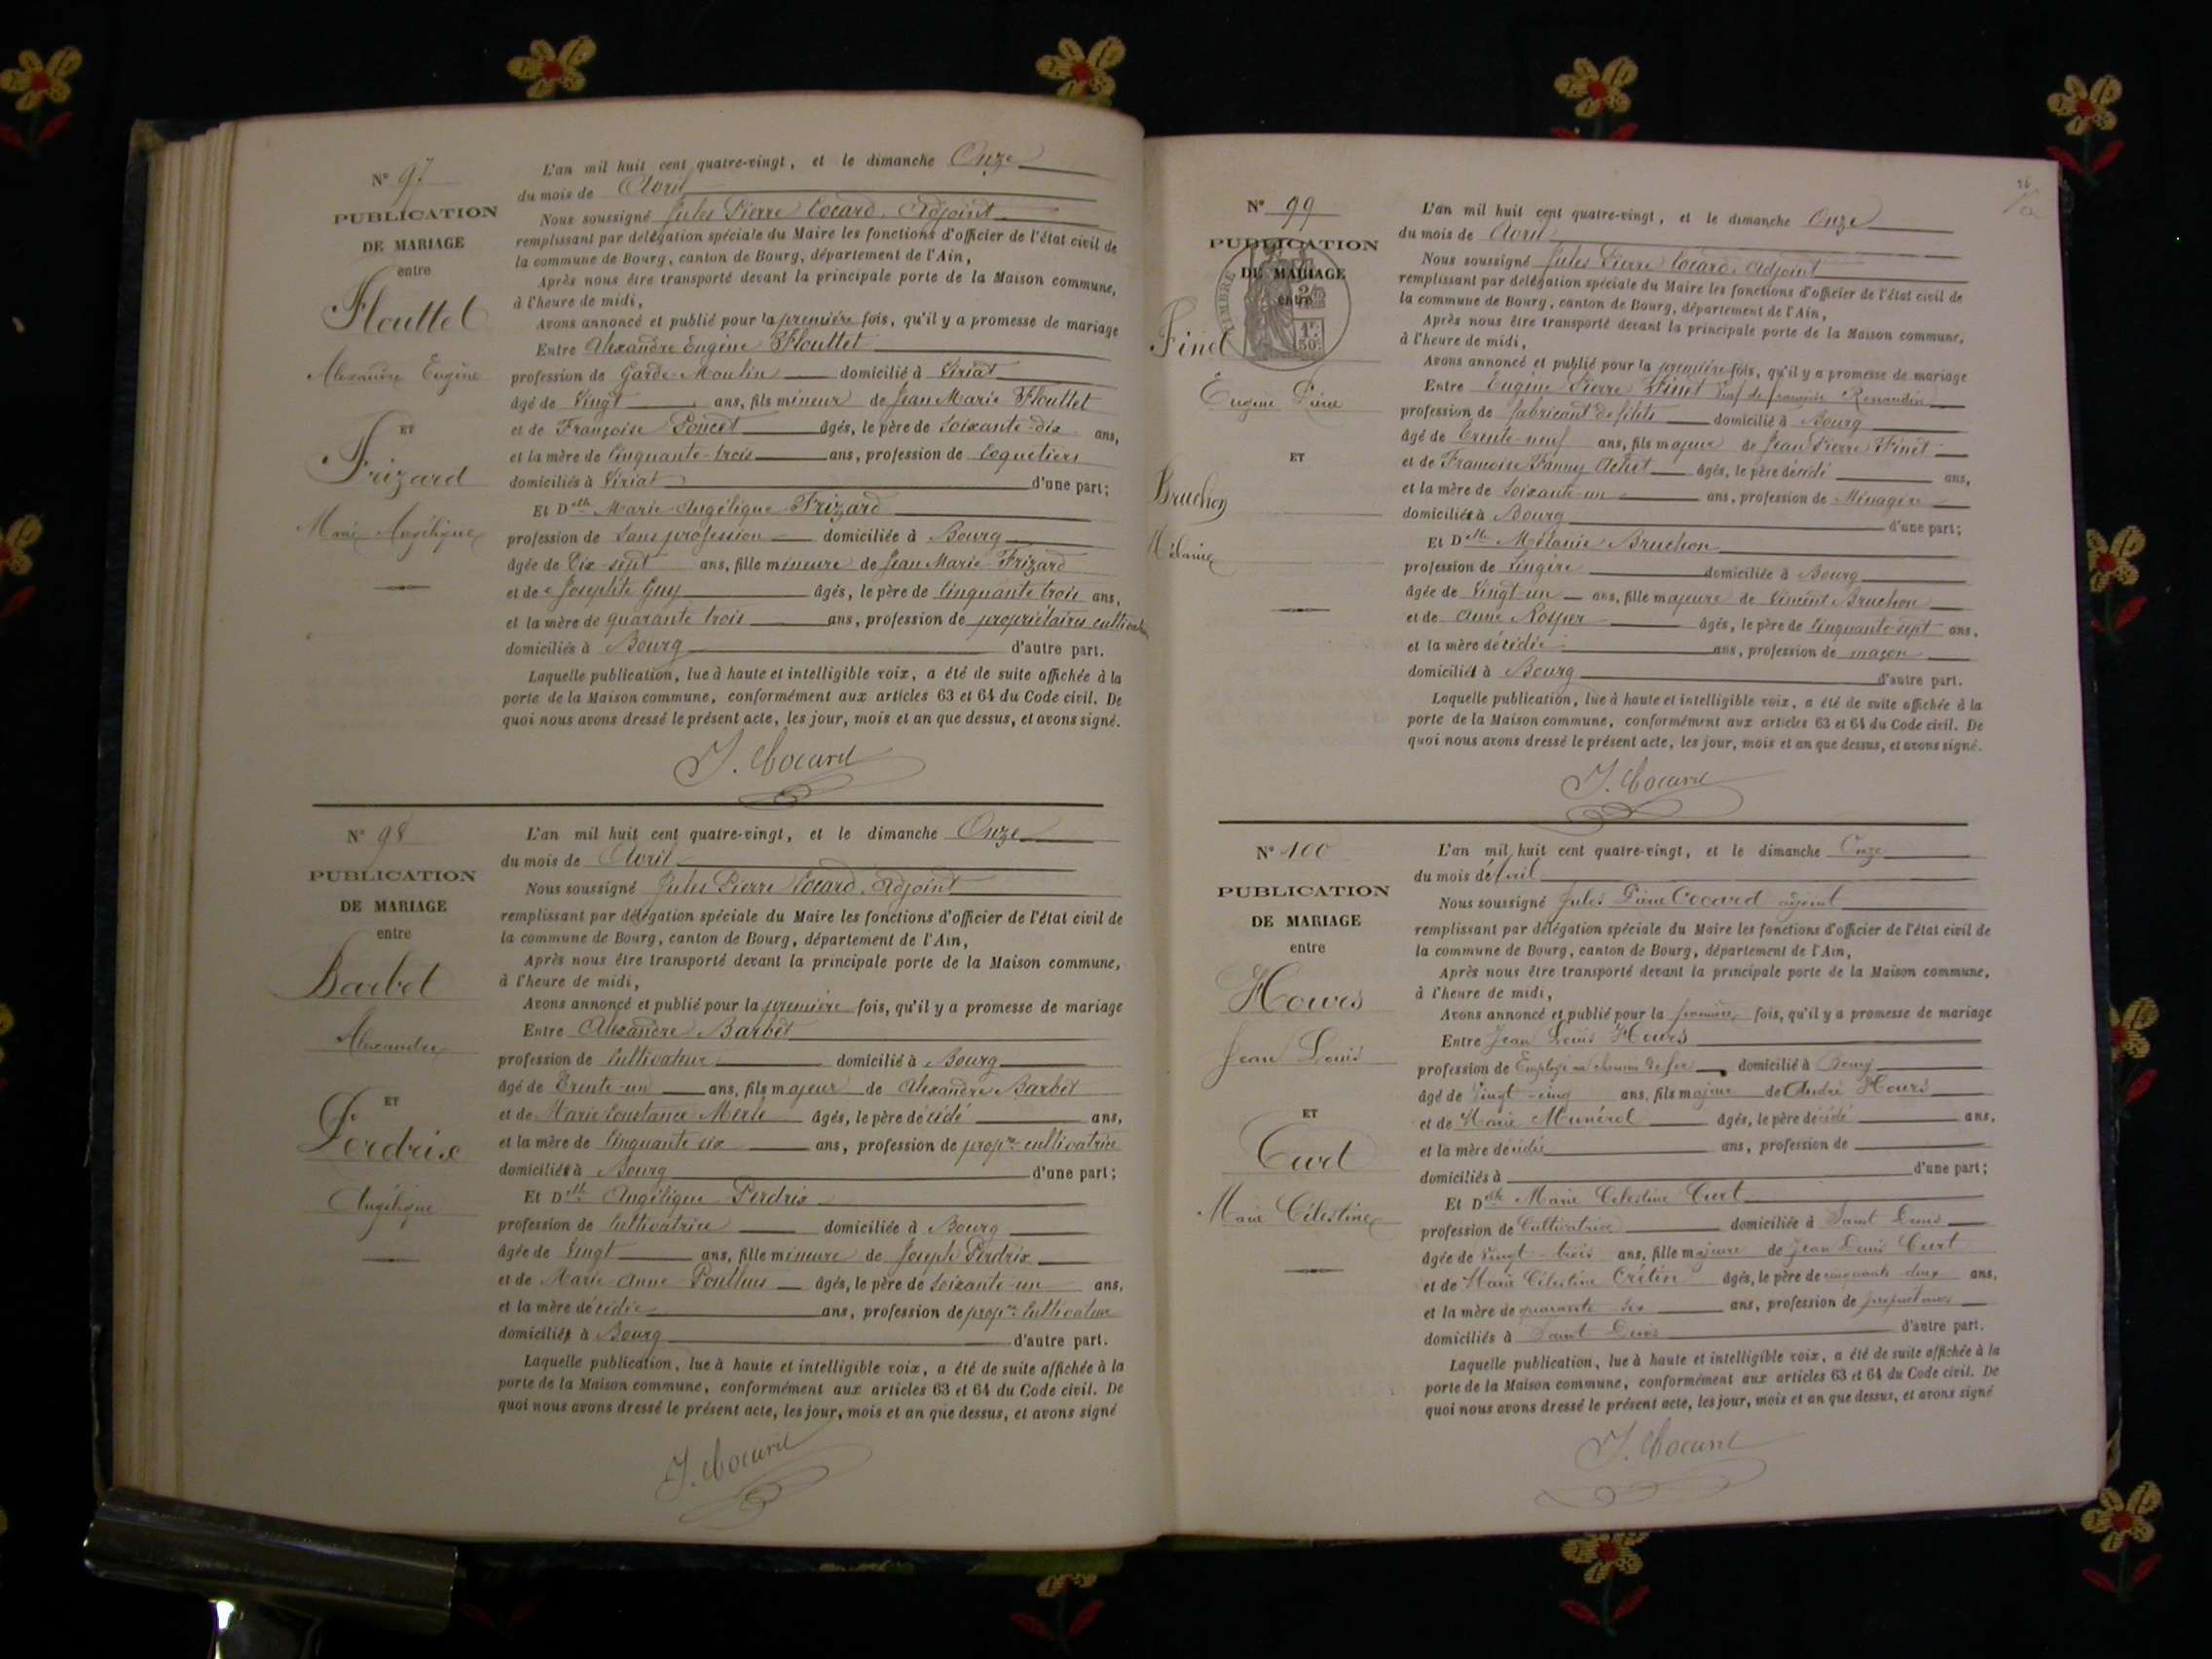 N° 97
PUBLICATION
DE MARIAGE
entre
Flouttet
Alexandre Eugène
ET
Frizard
Marie Angélique
L'an mil huit cent quatre-vingt, et le dimanche Onze
du mois de Avril
Nous soussigné Jules Pierre Cocard, Adjoint
remplissant par délégation spéciale du Maire les fonctions d'officier de l'état civil de
la commune de Bourg, canton de Bourg, département de l'Ain,
Après nous être transporté devant la principale porte de la Maison commune,
à l'heure de midi,
Avons annoncé et publié pour la première fois, qu'il y a promesse de mariage
Entre Alexandre Eugène Flouttet
profession de Garde-Moulin domicilié à Viriat
âgé de Vingt ans, fils mineur de Jean Marie Flouttet
et de Françoise Poncet âgés, le père de soixante-dix ans,
et la mère de Cinquante-trois ans, profession de Coquetiers
domiciliés à Viriat d'une part;
Et Delle Marie Angélique Frizard
profession de Sans profession domiciliée à Bourg
âgée de Dix-sept ans, fille mineure de Jean Marie Frizard
et de Josephte Guy âgés, le père de Cinquante trois ans,
et la mère de quarante trois ans, profession de propriétaires
domiciliés à Bourg d'autre part.
Laquelle publication, lue à haute et intelligible voix, a été de suite affichée à la
porte de la Maison commune, conformément aux articles 63 et 64 du Code civil. De
quoi nous avons dressé le présent acte, les jour, mois et an que dessus, et avons signé.
J. Cocard
N° 98
PUBLICATION
DE MARIAGE
entre
Barbet
Alexandre
ET
Perdrix
Angélique
L'an mil huit cent quatre-vingt, et le dimanche Onze
du mois de Avril
Nous soussigné Jules Pierre Cocard, Adjoint
remplissant par délégation spéciale du Maire les fonctions d'officier de l'état civil de
la commune de Bourg, canton de Bourg, département de l'Ain,
Après nous être transporté devant la principale porte de la Maison commune,
à l'heure de midi,
Avons annoncé et publié pour la première fois, qu'il y a promesse de mariage
Entre Alexandre Barbet
profession de Cultivateur domicilié à Bourg
âgé de Trente-un ans, fils majeur de Alexandre Barbet
et de Marie Constance Merle âgés, le père décédé ans,
et la mère de Cinquante six ans, profession de propre cultivatrice
domiciliés à Bourg d'une part;
Et Delle Angélique Perdrix
profession de Cultivatrice domiciliée à Bourg
âgée de Vingt ans, fille mineure de Joseph Perdrix
et de Marie Anne âgés, le père de soixante-un ans,
et la mère décédée ans, profession de propre Cultivateur
domiciliés à Bourg d'autre part.
Laquelle publication, lue à haute et intelligible voix, a été de suite affichée à la
porte de la Maison commune, conformément aux articles 63 et 64 du Code civil. De
quoi nous avons dressé le présent acte, les jour, mois et an que dessus, et avons signé
J. Cocard
N° 99
PUBLICATION
DE MARIAGE
entre
TIMBRE
Finet
Eugène Pierre
ET
Bruchon
Mélanie
L'an mil huit cent quatre-vingt, et le dimanche Onze
du mois de Avril
Nous soussigné Jules Pierre Cocard, Adjoint
remplissant par délégation spéciale du Maire les fonctions d'officier de l'état civil de
la commune de Bourg, canton de Bourg, département de l'Ain,
Après nous être transporté devant la principale porte de la Maison commune,
à l'heure de midi,
Avons annoncé et publié pour la première fois, qu'il y a promesse de mariage
Entre Eugène Pierre Finet Veuf de Renaudin
profession de fabricant de domicilié à Bourg
âgé de Trente-neuf ans, fils majeur de Jean Pierre Finet
et de Françoise Fanny âgés, le père décédé ans,
et la mère de soixante-un ans, profession de Ménagère
domiciliés à Bourg d'une part;
Et Delle Mélanie Bruchon
profession de Lingère domiciliée à Bourg
âgée de Vingt-un ans, fille majeure de Vincent Bruchon
et de Anne Rosper âgés, le père de Cinquante-sept ans,
et la mère décédée ans, profession de maçon
domiciliés à Bourg d'autre part.
Laquelle publication, lue à haute et intelligible voix, a été de suite affichée à la
porte de la Maison commune, conformément aux articles 63 et 64 du Code civil. De
quoi nous avons dressé le présent acte, les jour, mois et an que dessus, et avons signé.
J. Cocard
N° 100
PUBLICATION
DE MARIAGE
entre
Hours
Jean Louis
ET
Curt
Marie Célestine
L'an mil huit cent quatre-vingt, et le dimanche Onze
du mois de Avril
Nous soussigné Jules Pierre Cocard adjoint
remplissant par délégation spéciale du Maire les fonctions d'officier de l'état civil de
la commune de Bourg, canton de Bourg, département de l'Ain,
Après nous être transporté devant la principale porte de la Maison commune,
à l'heure de midi,
Avons annoncé et publié pour la première fois, qu'il y a promesse de mariage
Entre Jean Louis Hours
profession de Employé au chemin de fer domicilié à Bourg
âgé de Vingt-cinq ans, fils majeur de André Hours
et de Marie Munérol âgés, le père décédé ans,
et la mère décédée ans, profession de
domiciliés à d'une part;
Et Delle Marie Célestine Curt
profession de Cultivatrice domiciliée à Saint Denis
âgée de Vingt-trois ans, fille majeure de Jean Denis Curt
et de Marie Célestine Crétin âgés, le père de cinquante deux ans,
et la mère de quarante six ans, profession de propriétaires
domiciliés à Saint Denis d'autre part.
Laquelle publication, lue à haute et intelligible voix, a été de suite affichée à la
porte de la Maison commune, conformément aux articles 63 et 64 du Code civil. De
quoi nous avons dressé le présent acte, les jour, mois et an que dessus, et avons signé
J. Cocard